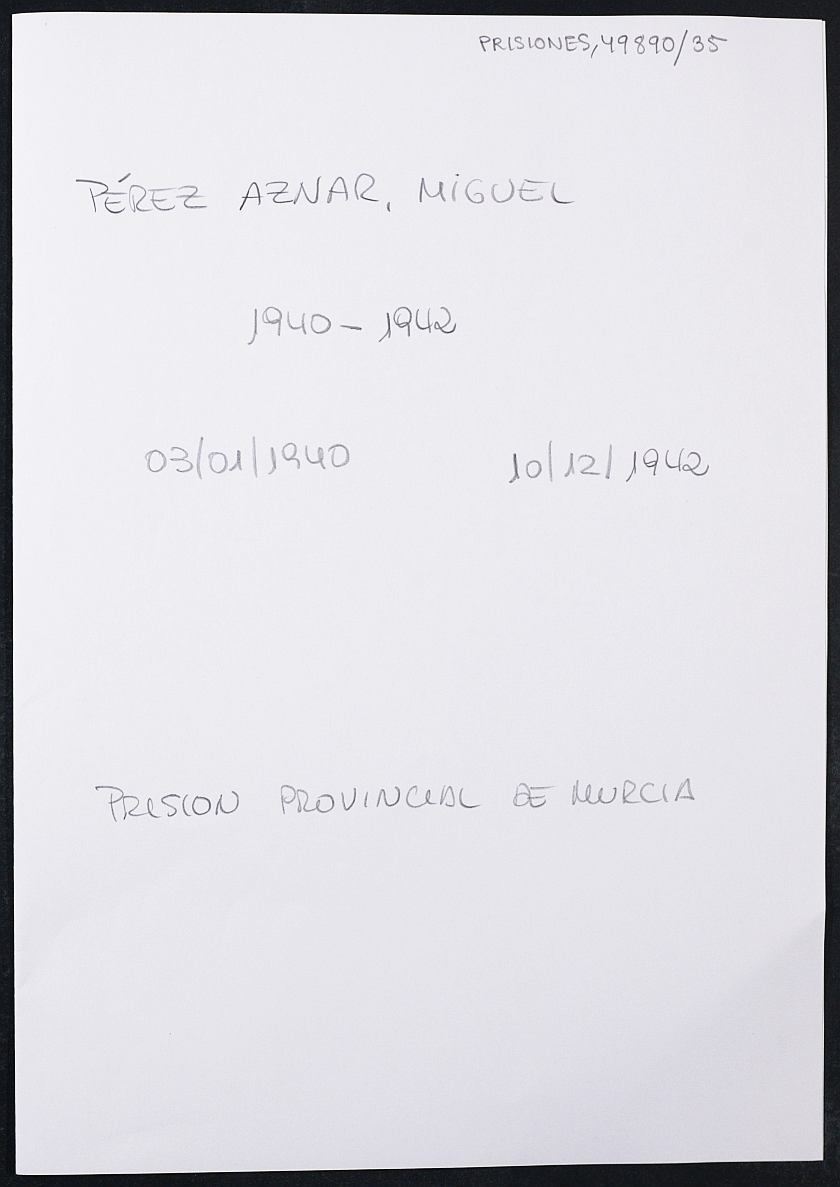 PRISIONES,49890/35
PÉREZ AZNAR, MIGUEL
1940 - 1942
03/01/1940 10/12/1942
PRISION PROVINCIAL DE MURCIA